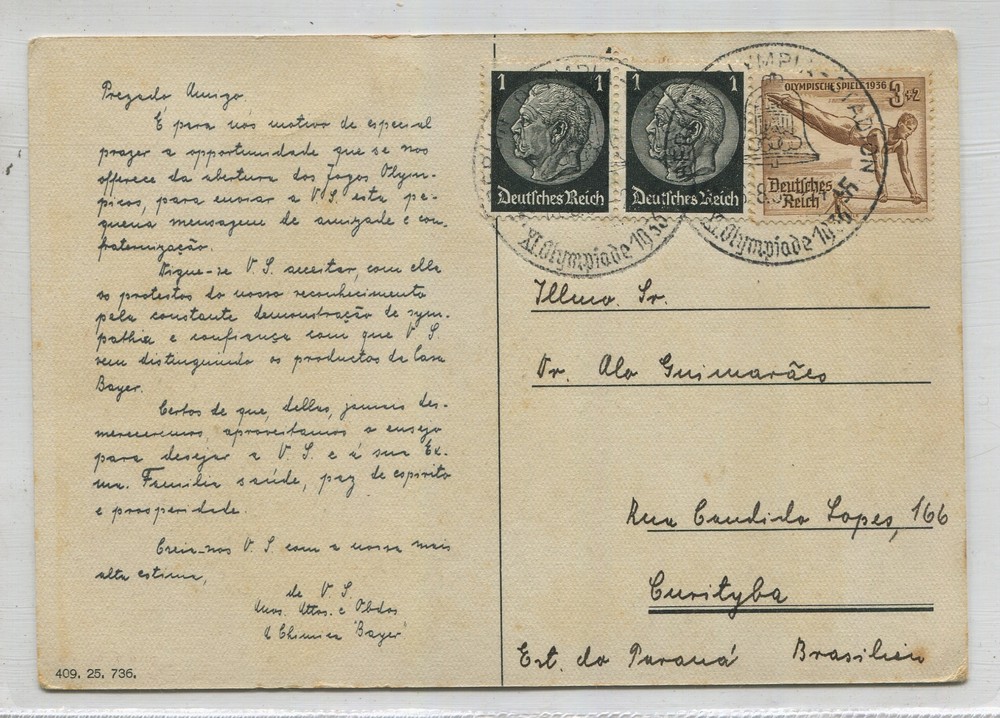 Prezado Amigo.
É para nós motivo de especial
prazer a opportunidade que se nos
offerece da abertura dos Jogos Olym-
picos, para enviar a V S. esta pe-
quena mensagem de amizade e con-
fraternização.
Digne-se V. S. acceitar, com ella
os protestos do nosso reconhecimento
pela constante demonstração de sym-
pathia e confiança com que V S.
vem distinguindo os productos da Casa
Bayer.
Certos de que, dellas, jamais des-
mereceremos, aproveitamos o ensejo
para desejar a V. S. e á sua Ex-
ma. Familia saúde, paz de espirito
e prosperidade.
Creia-nos V. S com a nossa mais
alta estima,
de V S.
Amos. Attos. e Obdos
A Chimica "Bayer"
409. 25. 736.
1 1
Deutsches Reich
1 1
Deutsches Reich
OLYMPISCHE SPIELE 1936
3+2
Deutsches
Reich
BERLIN OLYMPIA
XI. Olympiade 1936
BERLIN OLYMPIA-STADION
XI. Olympiade 1936
Illmo. Sr.
Dr. Alo Guimarães
Rua Candido Lopes, 166
Curityba
Est. do Paraná Brasilien